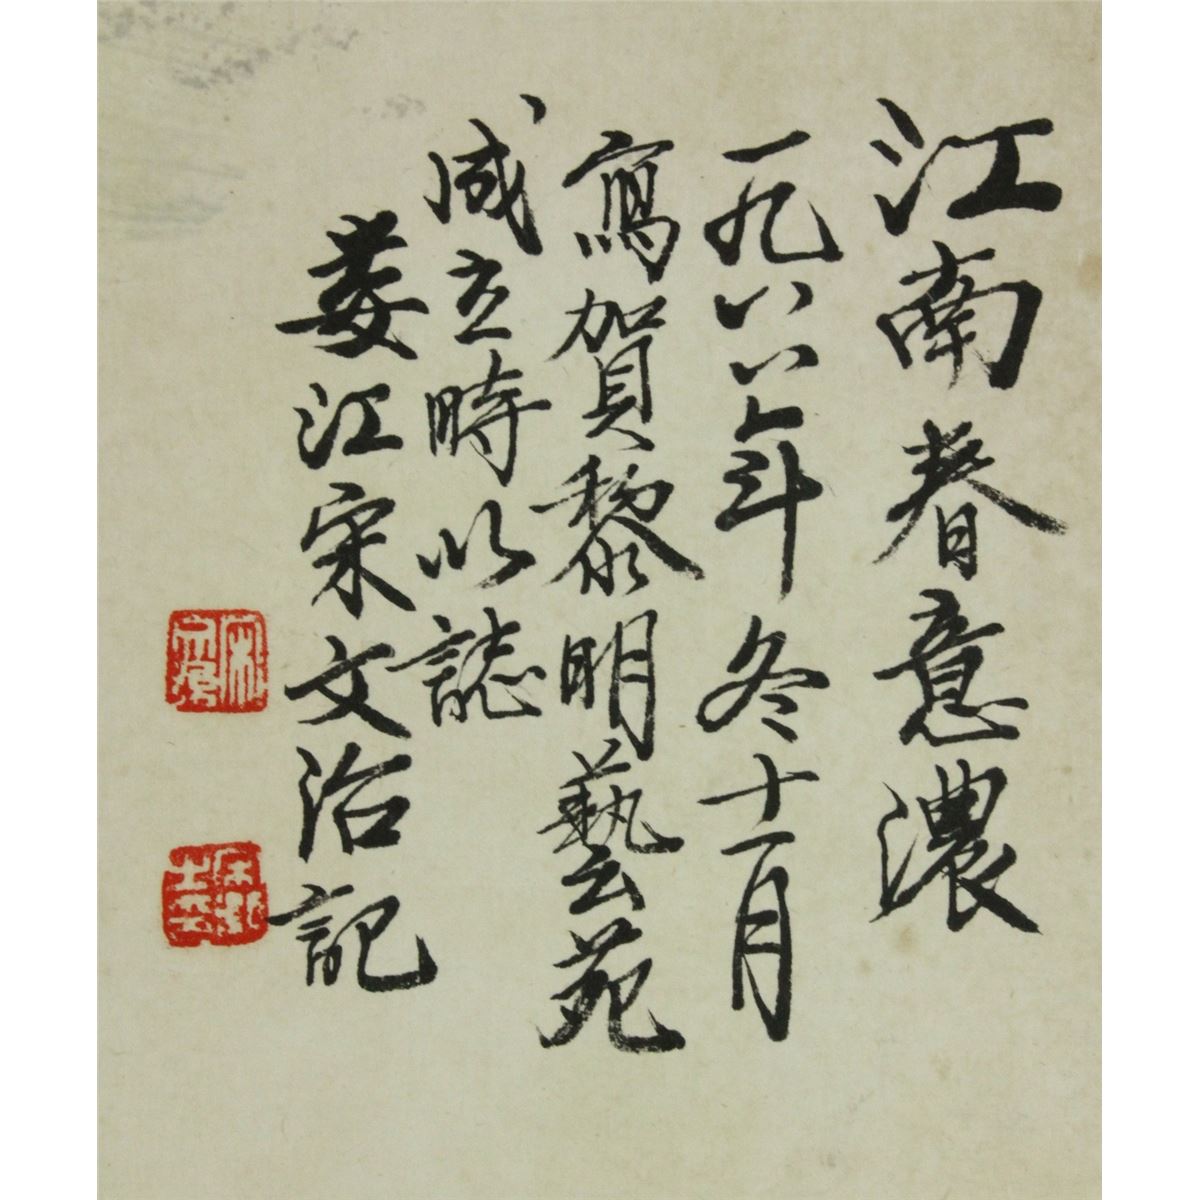 江南春意濃
一九八八年冬十一月
寫賀黎明藝苑
成立時以誌
婁江宋文治記